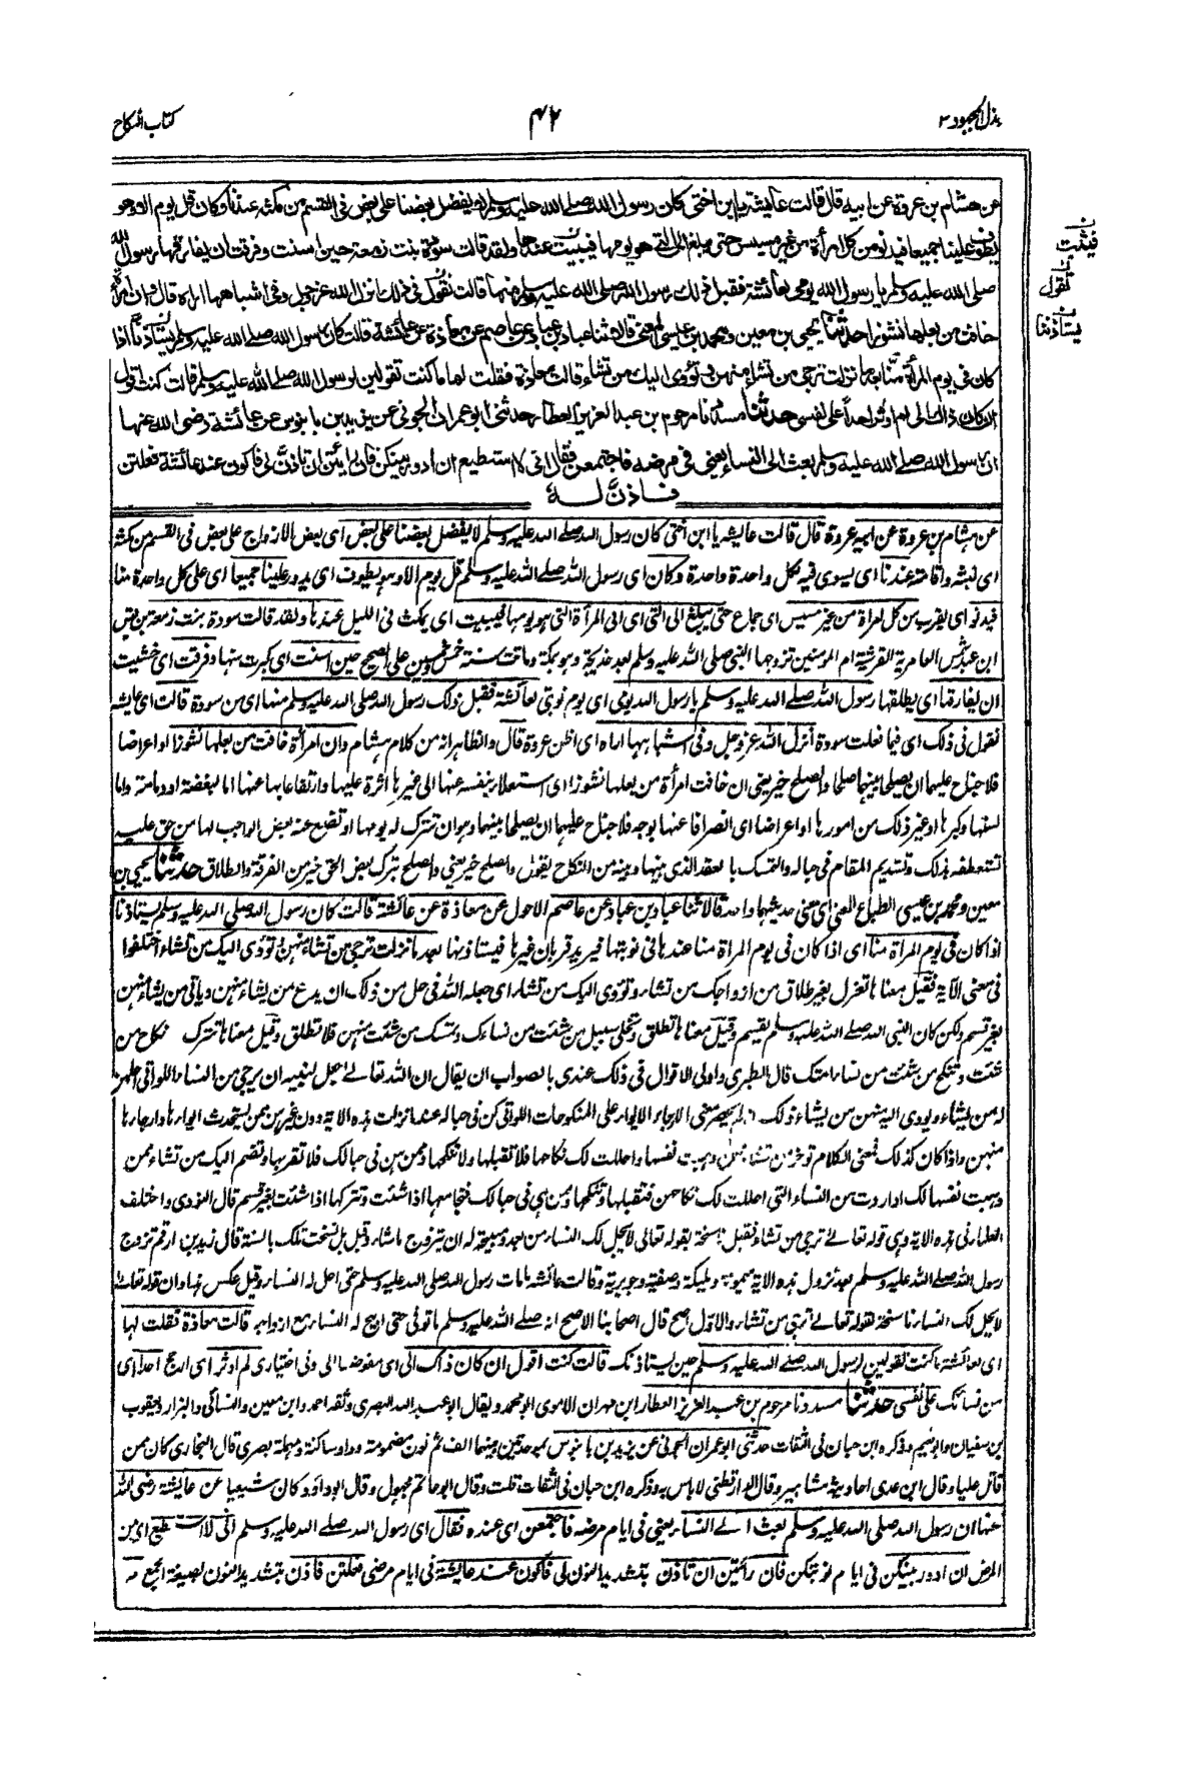 بذل المجهود ٣
٤٢
كتاب النكاح
عن هشام بن عروة عن ابيه قال قالت عائشة يا ابن اختى كان رسول الله صلى الله عليه وسلم لا يفضل بعضنا على بعض فى القسم من مكثه عندنا وكان قل يوم الا وهو
يطوف علينا جميعا فيدنو من كل امرأة من غير مسيس حتى يبلغ الى التى هو يومها فيبيت عندها ولقد قالت سودة بنت زمعة حين اسنت وفرقت ان يفارقها رسول الله
صلى الله عليه وسلم يا رسول الله يومى لعائشة فقبل ذلك رسول الله صلى الله عليه وسلم منها قالت نقول فى ذلك انزل الله عز وجل وفى اشباهها اراه قال وان امرأة
خافت من بعلها نشوزا حدثنا يحيى بن معين ومحمد بن عيسى المعنى قالا ثنا عباد بن عباد عن عاصم عن معاذة عن عائشة قالت كان رسول الله صلى الله عليه وسلم يستأذنا اذا
كان فى يوم المرأة منا بعد ما نزلت ترجى من تشاء منهن وتؤوى اليك من تشاء قالت معاذة فقلت لها ما كنت تقولين لرسول الله صلى الله عليه وسلم قالت كنت اقول
ان كان ذاك الى لم اوثر احدا على نفسى حدثنا مسدد نا مرحوم بن عبد العزيز العطار حدثنى ابو عمران الجونى عن يزيد بن بابنوس عن عائشة رضى الله عنها
ان رسول الله صلى الله عليه وسلم بعث الى النساء يعنى فى مرضه فاجتمعن فقال انى لا استطيع ان ادور بينكن فان رأيتن ان تأذن لى فاكون عند عائشة فعلتن
فاذن له
فيثبت
تقول
يستأذننا
عن هشام بن عروة عن ابيه عروة قال قالت عائشة يا ابن اختى كان رسول الله صلى الله عليه وسلم لا يفضل بعضنا على بعض اى بعض الازواج على بعض فى القسم من مكثه
اى لبثه واقامته عندنا اى يسوى فيه لكل واحدة واحدة وكان اى رسول الله صلى الله عليه وسلم قل يوم الا وهو يطوف اى يدور علينا جميعا اى على كل واحدة منا
فيدنو اى يقرب من كل امرأة من غير مسيس اى جماع حتى يبلغ الى التى اى الى المرأة التى هو يومها فيبيت اى يمكث فى الليل عندها ولقد قالت سودة بنت زمعة بن قيس
ابن عبد شمس العامرية القرشية ام المؤمنين تزوجها النبى صلى الله عليه وسلم بعد خديجة وهو بمكة وماتت سنة خمس وخمسين على الصحيح حين اسنت اى كبرت سنها وفرقت اى خشيت
ان يفارقها اى يطلقها رسول الله صلى الله عليه وسلم يا رسول الله يومى اى يوم نوبتى لعائشة فقبل ذلك رسول الله صلى الله عليه وسلم منها اى من سودة قالت اى عائشة
نقول فى ذلك اى فيما فعلت سودة انزل الله عز وجل وفى اشباهها اراه اى اظن عروة قال والظاهر انه من كلام هشام وان امرأة خافت من بعلها نشوزا او اعراضا
فلا جناح عليهما ان يصلحا بينهما صلحا والصلح خير يعنى ان خافت امرأة من بعلها نشوزا اى استعلاء بنفسه عنها الى غيرها اثرة عليها وارتفاعا بها عنها اما لبغضة او دمامة واما
لسنها وكبرها او غير ذلك من امورها او اعراضا اى انصرافا عنها بوجه فلا جناح عليهما ان يصلحا بينهما وهو ان تترك له يومها او تضع عنه بعض الواجب لها من حق عليه
تستعطفه بذلك وتستديم المقام فى حباله والتمسك بالعقد الذى بينها وبينه من النكاح يقول والصلح خير يعنى والصلح بترك بعض الحق خير من الفرقة والطلاق حدثنا يحيى بن
معين ومحمد بن عيسى الطباع المعنى اى معنى حديثهما واحد قالا ثنا عباد بن عباد عن عاصم الاحول عن معاذة عن عائشة قالت كان رسول الله صلى الله عليه وسلم يستأذنا
اذا كان فى يوم المرأة منا اى اذا كان فى يوم المرأة منا عندها فى نوبتها فيريد قربان غيرها فيستأذنها بعد ما نزلت ترجى من تشاء منهن وتؤوى اليك من تشاء اختلفوا
فى معنى الآية فقيل معناها تعزل بغير طلاق من ازواجك من تشاء وتؤوى اليك من تشاء اى جعله الله فى حل من ذلك ان يدع من يشاء منهن ويأتى من يشاء منهن
بغير قسم ولكن كان النبى صلى الله عليه وسلم يقسم وقيل معناها تطلق وتخلى سبيل من شئت من نسائك وتمسك من شئت منهن فلا تطلق وقيل معناها تترك نكاح من
شئت وتنكح من شئت من نساء امتك قال الطبرى واولى الاقوال فى ذلك عندى بالصواب ان يقال ان الله تعالى جعل لنبيه ان يرجى من النساء اللواتى احلهن
له من يشاء ويؤوى اليه منهن من يشاء وذلك انه لم يحصر معنى الارجاء والايواء على المنكوحات اللواتى كن فى حباله عندما نزلت هذه الاية دون غيرهن ممن يستحدث ايواءها وارجاءها
منهن واذا كان كذلك فمعنى الكلام توخر من تشاء ممن وهبت نفسها واحللت لك نكاحها فلا تقبلها ولا تنكحها وممن هن فى حبالك فلا تقربها وتضم اليك من تشاء ممن
وهبت نفسها لك او اردت من النساء التى احللت لك نكاحهن فتقبلها وتنكحها وممن هى فى حبالك فتجامعها اذا شئت وتتركها اذا شئت بغير قسم قال النووى واختلف
العلماء فى هذه الاية وهى قوله تعالى ترجى من تشاء فقيل ناسخة لقوله تعالى لا يحل لك النساء من بعد ومبيحة له ان يتزوج ما شاء وقيل بل نسخت تلك بالسنة قال زيد بن ارقم تزوج
رسول الله صلى الله عليه وسلم بعد نزول هذه الاية ميمونة ومليكة وصفية وجويرية وقالت عائشة ما مات رسول الله صلى الله عليه وسلم حتى احل له النساء وقيل عكس هذا وان قوله تعالى
لا يحل لك النساء ناسخة لقوله تعالى ترجى من تشاء والاول اصح قال اصحابنا الاصح انه صلى الله عليه وسلم ما توفى حتى ابيح له النساء مع ازواجه قالت معاذة فقلت لها
اى لعائشة ما كنت تقولين لرسول الله صلى الله عليه وسلم حين يستأذنك قالت كنت اقول ان كان ذاك الى اى مفوضا الى وفى اختيارى لم اوثر اى ارجح احدا اى
من نسائك على نفسى حدثنا مسدد نا مرحوم بن عبد العزيز العطار ابن مهران الاموى ابو محمد ويقال ابو عبد الله البصرى وثقه احمد وابن معين والنسائى والبزار ويعقوب
بن سفيان وابو نعيم وذكره ابن حبان فى الثقات حدثنى ابو عمران الجونى عن يزيد بن بابنوس بموحدتين بينهما الف ثم نون مضمومة وواو ساكنة ومهملة بصرى قال البخارى كان ممن
قاتل عليا وقال ابن عدى احاديثه مشاهير وقال الدارقطنى لا باس به وذكره ابن حبان فى الثقات قلت وقال ابو حاتم مجهول وقال ابو داؤد كان شيعيا عن عائشة رضى الله
عنها ان رسول الله صلى الله عليه وسلم بعث الى النساء يعنى فى ايام مرضه فاجتمعن اى عنده فقال اى رسول الله صلى الله عليه وسلم انى لا استطيع اى من
المرض ان ادور بينكن فى ايام نوبتكن فان رأيتن ان تأذن بتشديد النون لى فاكون عند عائشة فى ايام مرضى فعلتن فاذن بتشديد النون لصيغة الجمع